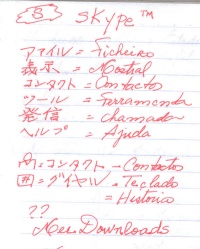 B SKYPE™
ファイル = Ficheiro
表示 = Mostrar
コンタクト = Contactos
ツール = Ferramenda
発信 = chamada
ヘルプ = Ajuda
コンタクト - Contactos
= ダイヤル. Teclado
= Historia
??
Meu Downloads